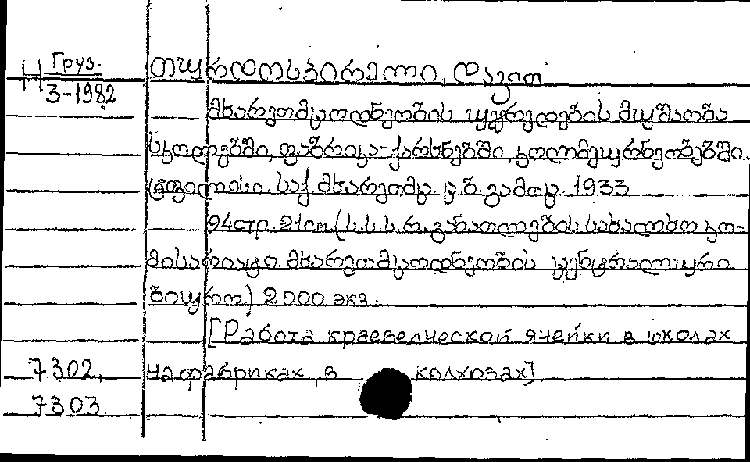 Н Груз.
3-1982
თურდოსპირელი, დავით
მხარეთმცოდნეობის უჯრედების მუშაობა
სკოლებში, ფაბრიკა-ქარხნებში, კოლმეურნეობებში.
ტფილისი. საქ. მხარეთმც. ც.ბ. გამოც. 1933
94стр. 21см. (ს.ს.ს.რ. განათლების სახალხო კო-
მისარიატი მხარეთმცოდნეობის ცენტრალური
ბიურო) 2000 экз.
[Работа краеведческой ячейки в школах
7302, на фабриках, в колхозах]
7303